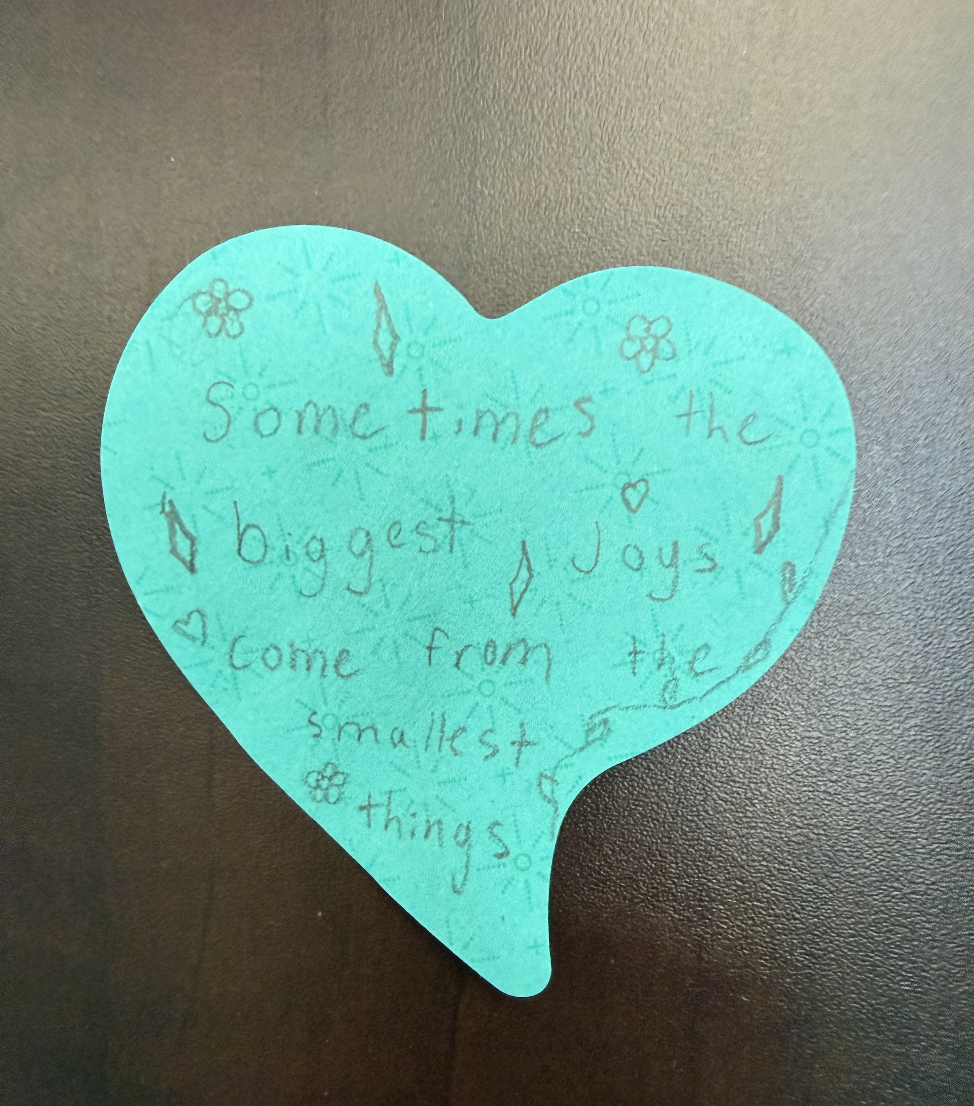 Sometimes the
biggest Joys
come from the
smallest
things